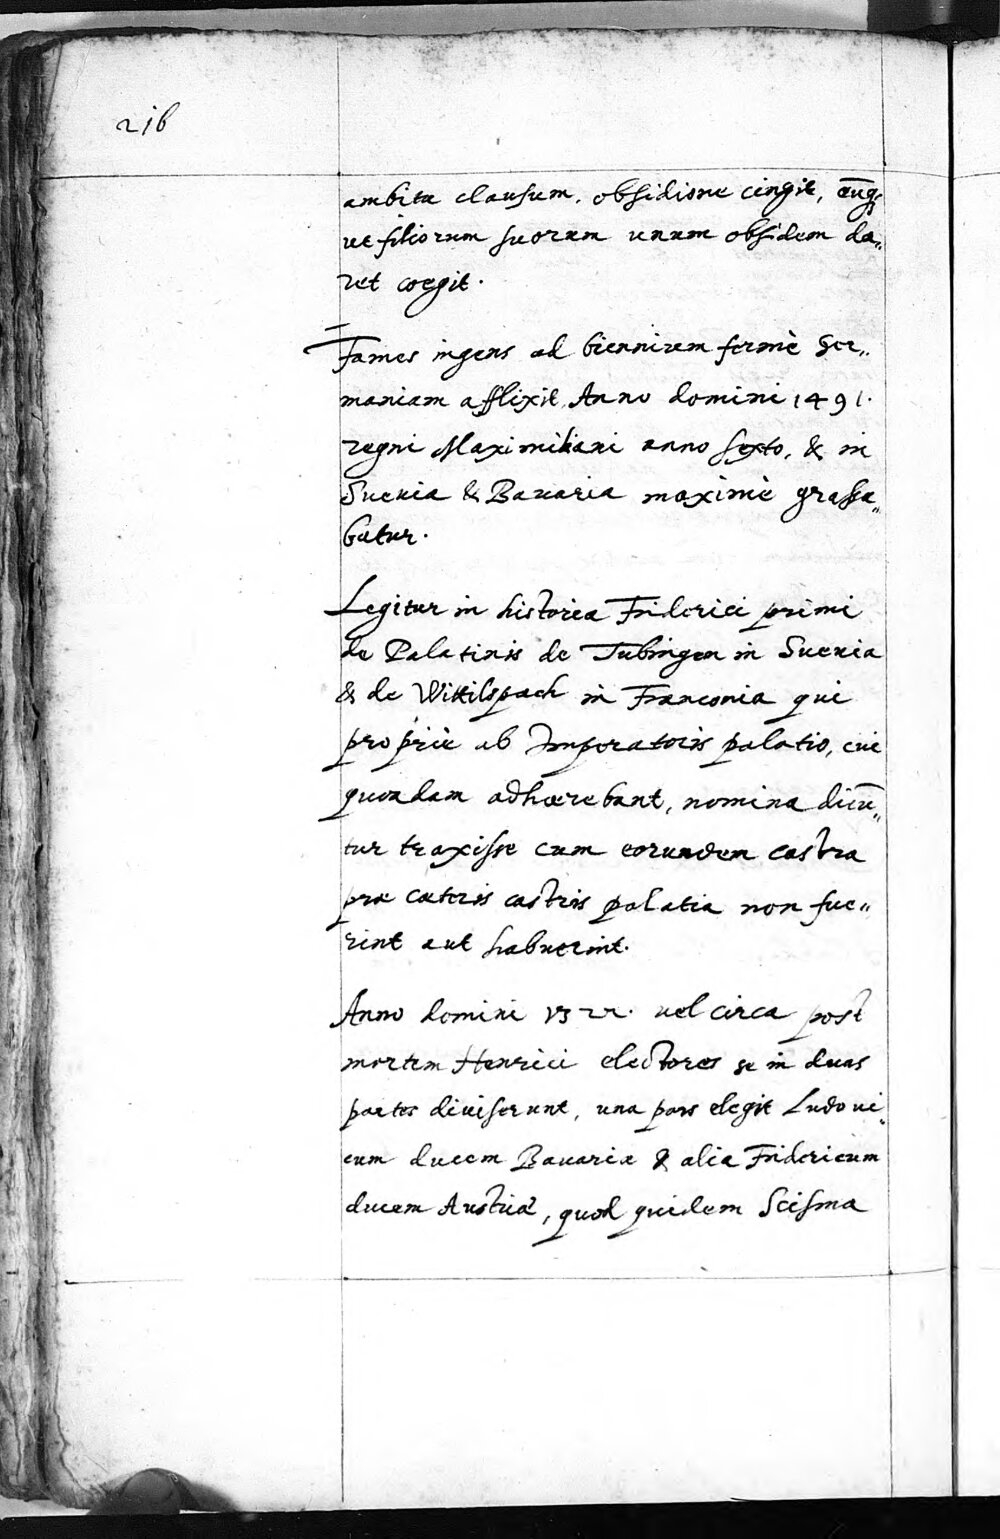 216
ambitu clausum, obsidione cingit, eūq;
ut filiorum suorum unum obsidem da„
ret coegit.
Fames ingens ad biennium fermè Ger„
maniam afflixit Anno domini 1491.
regni Maximiliani anno sexto, & in
Sueuia & Bauaria maximè grassa„
batur.
Legitur in historia Friderici primi
de Palatinis de Tubingen in Sueuia
& de Wittilspach in Franconia qui
propriè ab Imperatoris palatio, cui
quondam adhaerebant, nomina dicū„
tur traxisse cum eorundem castra
prae caeteris castris palatia non fue„
rint aut habuerint.
Anno domini 1322. uel circa post
mortem Henrici electores se in duas
partes diuiserunt, una pars elegit Ludoui„
cum ducem Bauariae & alia Fridericum
ducem Austriae, quod quidem Scisma